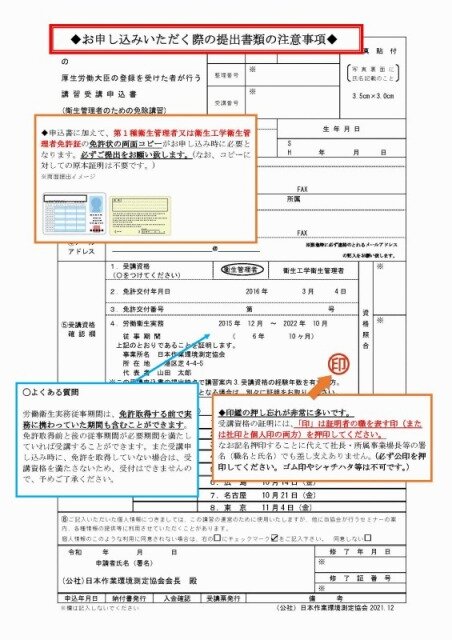 ◆お申し込みいただく際の提出書類の注意事項◆
の
厚生労働大臣の登録を受けた者が行う
講習受講申込書
(衛生管理者のための免除講習)
整理番号
※
受講番号
※
真 貼 付
(写真裏面に
氏名記載のこと)
3.5cm×3.0cm
◆申込書に加えて、第1種衛生管理者又は衛生工学衛生管
理者免許証の免許状の両面コピーがお申し込み時に必要と
なります。必ずご提出をお願い致します。(なお、コピーに
対しての原本証明は不要です。)
※両面提出イメージ
生 年 月 日
S
H 年 月 日
FAX
所属
FAX
アドレス
@
の記入をお願い致します。
⑤受講資格
確認欄
1. 受講資格
(○をつけてください)
衛生管理者 衛生工学衛生管理者
※
2. 免許交付年月日 2016年 3月 4日
3. 免許交付番号 第 号
4. 労働衛生実務 2015年 12月 ～ 2022年 10月
従事期間 ( 6年 10ヶ月)
上記のとおりであることを証明します。
事業所名 日本作業環境測定協会
所在地 港区芝4-4-5
代表者 山田 太郎
印
資格照合
※
○よくある質問
労働衛生実務従事期間は、免許取得する前で実
務に携わっていた期間も含むことができます。
免許取得前と後の従事期間が必要期間を満たし
ていれば受講することができます。また受講申
し込み時に、免許を取得していない場合は、受
講資格を満たさないため、受付はできませんの
で、予めご了承ください。
◆印鑑の押し忘れが非常に多いです。
受講資格の証明には、「印」は証明者の職を表す印(また
は社印と個人印の両方)を押印してください。
なお記名押印することに代えて社長・所属事業場長等の署
名(職名と氏名)でも差し支えありません。(必ず公印を押
印してください。ゴム印やシャチハタ等は不可です。)
6. 広 島 10月14日(金)
7. 名古屋 10月21日(金)
8. 東 京 11月4日(金)
⑧ご記入いただいた個人情報につきましては、この講習の運営のために使用いたしますが、他に当協会が行うセミナーの案
内、各種情報の提供等に利用させていただくことがあります。
個人情報のこのような利用に同意されない場合は、右の□にチェックマーク☑をご記入下さい。 同意しない□
令和 年 月 日
申請者氏名(署名)
(公社)日本作業環境測定協会会長 殿
修 了 年 月 日
※
修 了 証 番 号
※
申込年月日 納付書発行 入金確認 受講票発行 備 考
※欄は記入しないでください
(公社)日本作業環境測定協会 2021.12